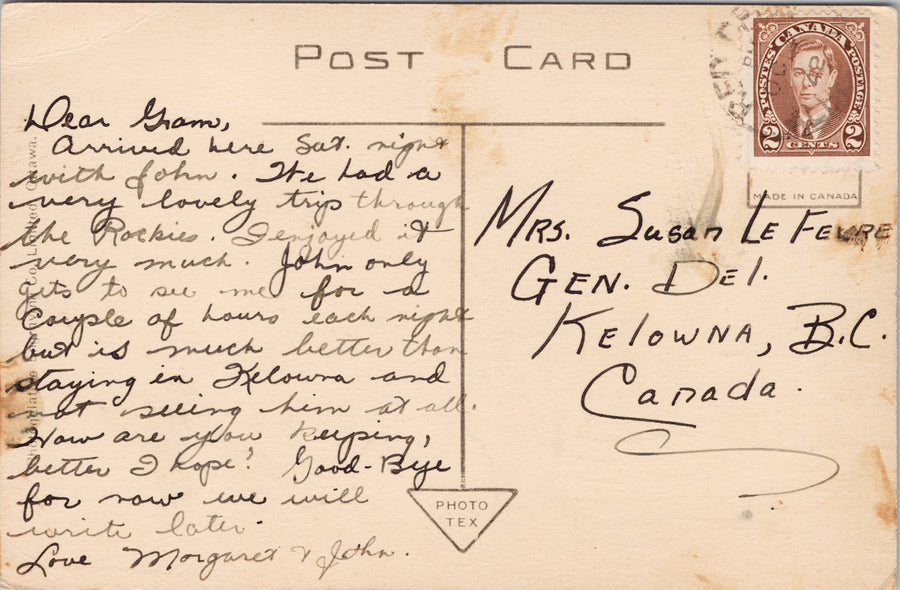 POST CARD
POSTES CANADA POSTAGE
2 CENTS 2
MADE IN CANADA
Dear Gram,
Arrived here Sat. night
with John. We had a
very lovely trip through
the Rockies. I enjoyed it
very much. John only
gets to see me for a
couple of hours each night
but is much better than
staying in Kelowna and
not seeing him at all.
How are you keeping,
better I hope? Good-Bye
for now we will
write later.
Love Morgaret & John.
MRS. Susan LE FEVRE
GEN. Del.
KelOWNA, B.C.
Canada.
PHOTO
TEX